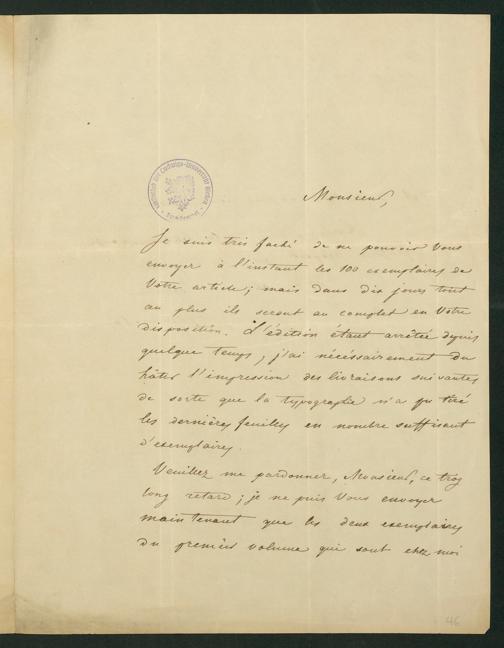 Monsieur,
Je suis très faché de ne pouvoir Vous
envoyer à l'instant les 100 exemplaires de
Votre article; mais dans dix jours tout
au plus ils seront au complet en Votre
disposition. L'édition étant arrêtée depuis
quelque temps, j'ai nécéssairement du
hâter l'impression des livraisons suivantes
de sorte que la typographie n'a pu tiré
les dernières feuilles en nombre suffisant
d'exemplaires.
Veuillez me pardonner, Monsieur, ce trop
long retard; je ne puis Vous envoyer
maintenant que les deux exemplaires
du premier volume qui sont chez moi
46